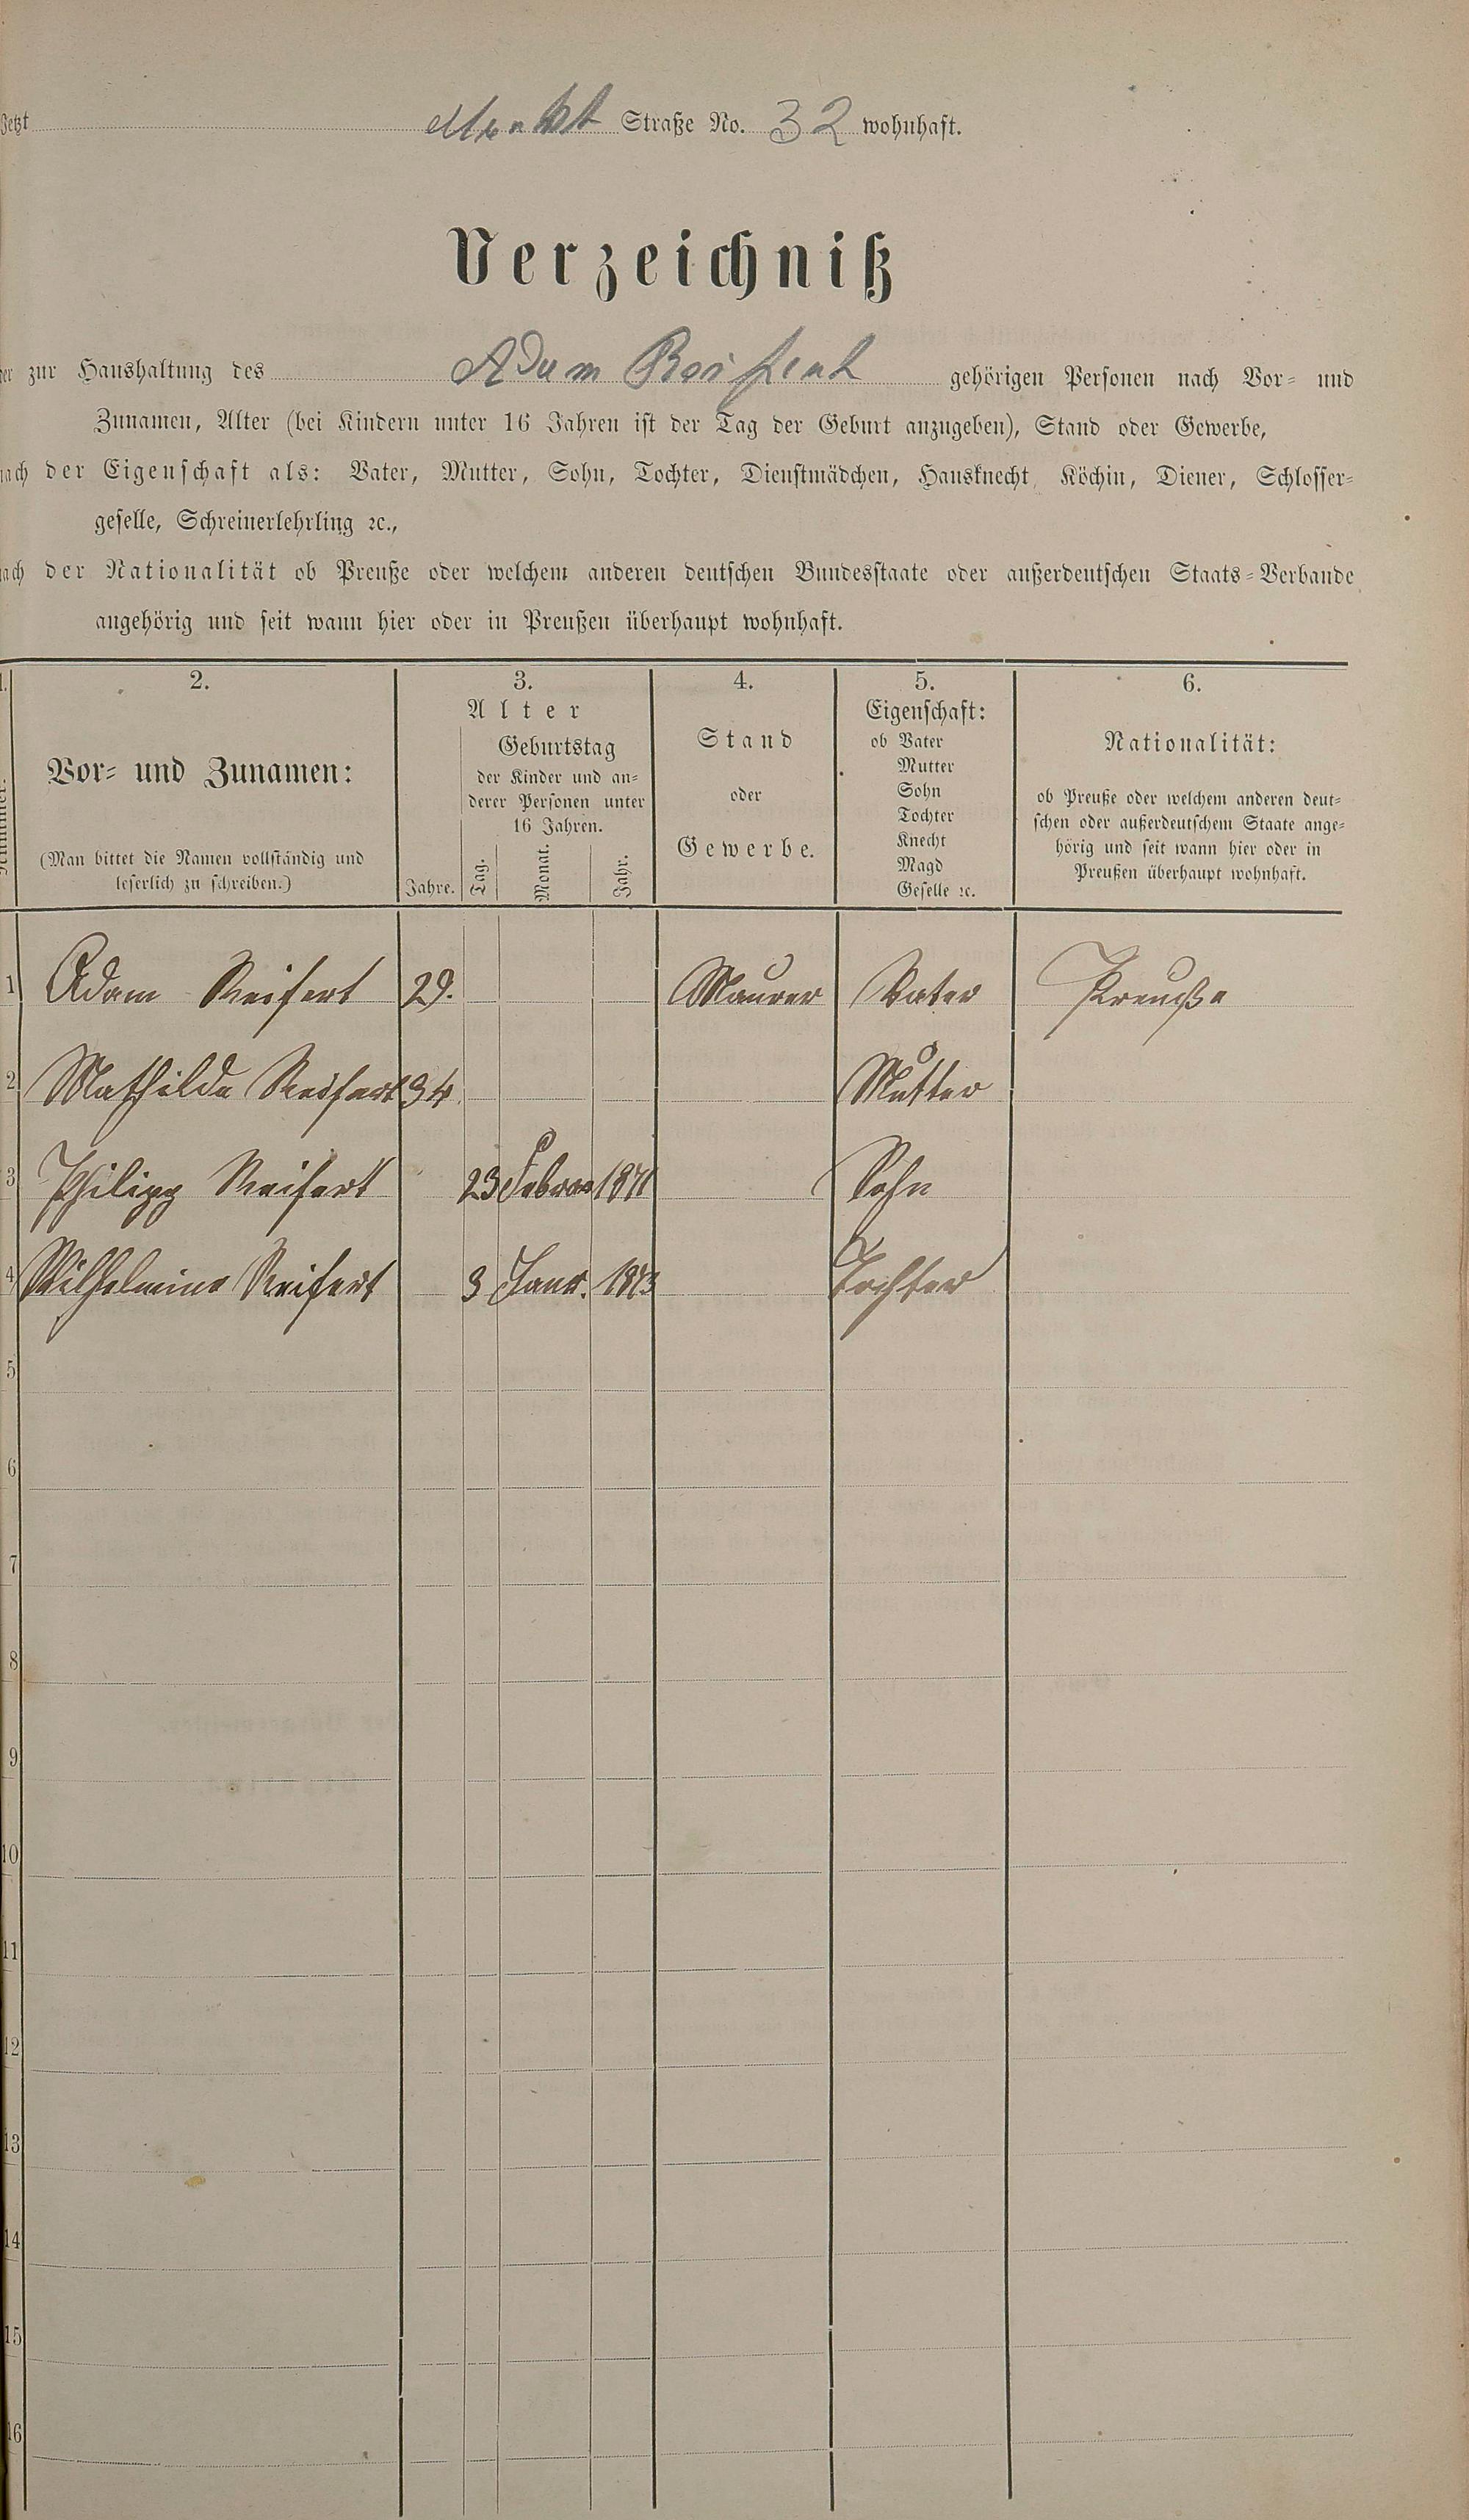 Jetzt Markt Straße No. 32 wohnhaft.
Verzeichniß
der zur Haushaltung des Adam Reifert gehörigen Personen nach Vor- und
Zunamen, Alter (bei Kindern unter 16 Jahren ist der Tag der Geburt anzugeben), Stand oder Gewerbe,
nach der Eigenschaft als: Vater, Mutter, Sohn, Tochter, Dienstmädchen, Hausknecht, Köchin, Diener, Schlosser-
geselle, Schreinerlehrling ꝛc.,
nach der Nationalität ob Preuße oder welchem anderen deutschen Bundesstaate oder außerdeutschen Staats-Verbande
angehörig und seit wann hier oder in Preußen überhaupt wohnhaft.
1. 2. 3. 4. 5. 6.
Nummer.
Vor- und Zunamen:
(Man bittet die Namen vollständig und
leserlich zu schreiben.)
Alter
Jahre.
Geburtstag
der Kinder und an-
derer Personen unter
16 Jahren.
Tag. Monat. Jahr.
Stand
oder
Gewerbe.
Eigenschaft:
ob Vater
Mutter
Sohn
Tochter
Knecht
Magd
Geselle ꝛc.
Nationalität:
ob Preuße oder welchem anderen deut-
schen oder außerdeutschem Staate ange-
hörig und seit wann hier oder in
Preußen überhaupt wohnhaft.
1 Adam Reifert 29. Maurer Vater Preuße
2 Mathilde Reifert 34. Mutter
3 Philipp Reifert 23 Februar 1871 Sohn
4 Wilhelmine Reifert 3 Janr. 1873 Tochter
5
6
7
8
9
10
11
12
13
14
15
16